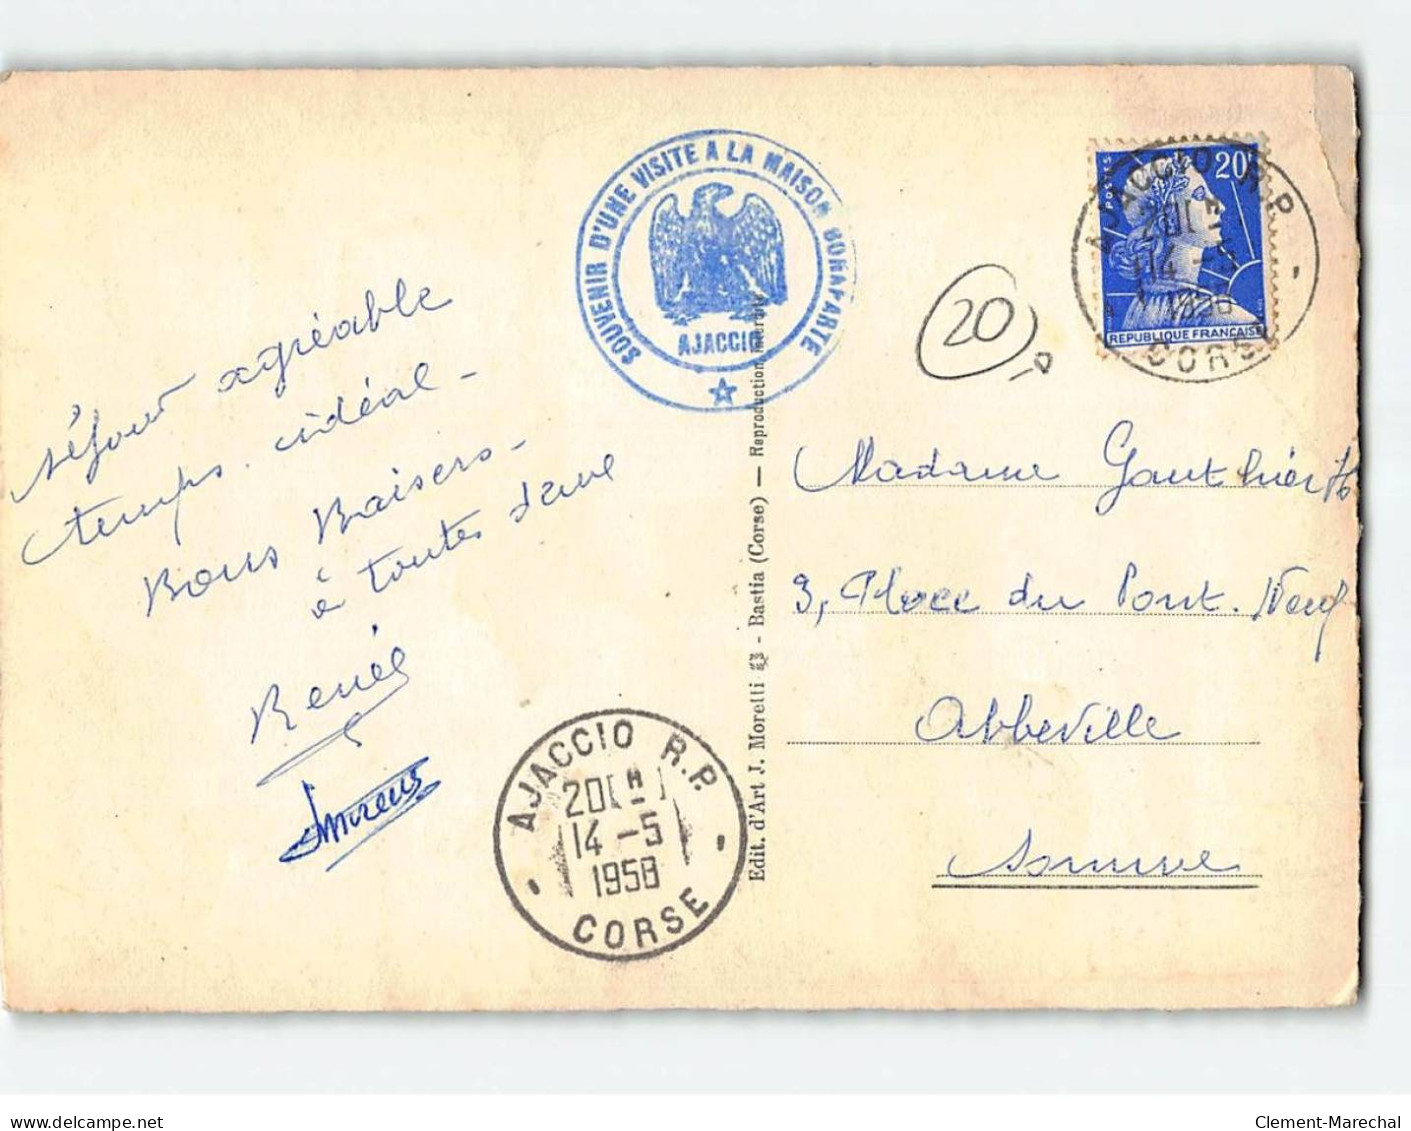 SOUVENIR D'UNE VISITE A LA MAISON BONAPARTE
AJACCIO
séjour agréable
temps idéal -
Bons Baisers -
à toutes deux
Renée
AJACCIO R.P.
20 H
14 - 5
1958
CORSE
Edit. d'Art J. Moretti - Bastia (Corse) — Reproduction interdite
20
POSTES
20F
REPUBLIQUE FRANÇAISE
AJACCIO R.P.
20 H
14 - 5
1958
CORSE
Madame
3, Place du Pont-Neuf
Abbeville
Somme
delcampe.net
Clement-Marechal